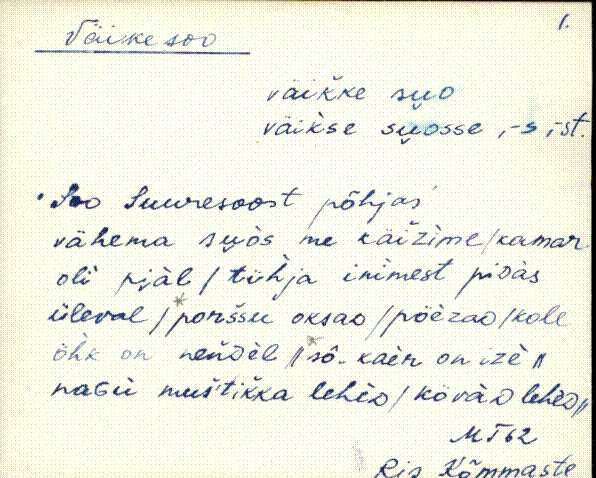 Väike soo
1.
väikke su̯o
väikse su̯osse, -s, -st.
Soo Suuresoost põhjas
vähema su̯òs me käiz̆ime / kamar
oli pjäl / tühja inimest piDàs
üleval / porššu oksaD / pöèzaD / kole
õhk on nendèl // sô- kaèr on izè //
naGù muštikka lehèD / kòvàD lehèD //
MT62
Ris Kõmmaste